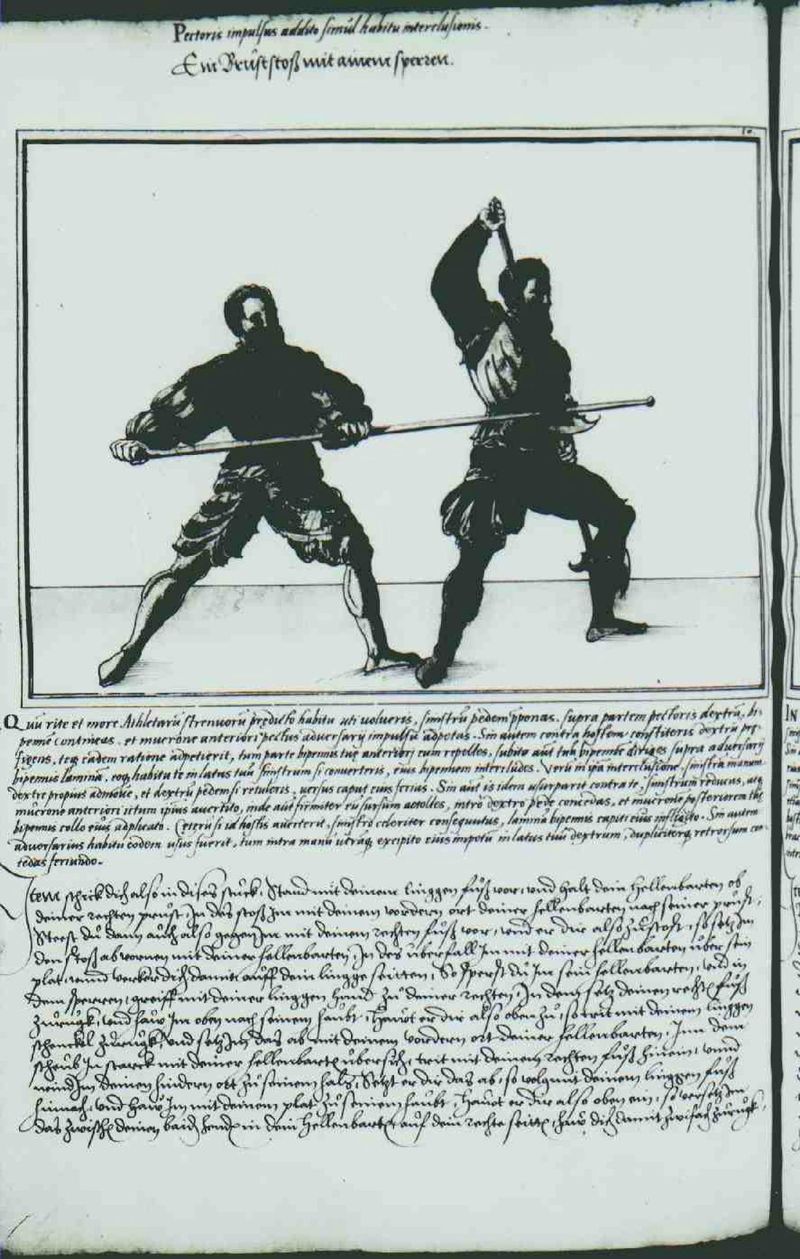 Pectoris impulsus addito simul habitu interclusionis.
Ein Brust stoß mit ainem sperren.
10.
Quum rite et more Athletarum strenuorum praedicto habitu uti volueris, sinistrum pedem praeponas. supra partem pectoris dextram, bi-
pennem contineas. et mucrone anteriori pectus adversarij impulsu adpetas. Sin autem contra hostem constiteris dextrum prae-
figens, teque eadem ratione adpetierit, tum parte bipennis tuae anteriori eum repelles, subito autem tuam bipennem diriges supra adversarij
bipennis laminam. eoque habitu te in latus tuum sinistrum si converteris, eius bipennem intercludes. Verum in ipsa interclusione, sinistram manum
dextrae propius admove, et dextrum pedem si retuleris, versus caput eius ferias. Sin autem is idem usurparit contra te, sinistrum reducas, atque
mucrone anteriori ictum ipsius avertito, inde autem firmiter eum sursum attolles, intro dextro pede concedas, et mucronem posteriorem tuae
bipennis collo eius adplicato. Ceterum si id hostis averterit, sinistro celeriter consequutus, laminam bipennis capiti eius infligito. Sin autem
adversarius habitu eodem usus fuerit, tum intra manum utramque excipito eius impetum in latus tuum dextrum, dupliciterque retrorsum con-
cedas feriundo.
Item schick dich also in dises stuck, Stand mit deinem linggen fuß vor, vnd halt dein hellenbarten ob
deiner rechten prust, In das stoß Im mit deinem vordern ort deiner hellenbarten nach seiner prust,
Steest du dann auch also gegen Im mit deinem rechten fuß vor, vnd er dir also zustost, so setz Im
den stoß ab vornen mit deiner hellenbarten, In des überfall Im mit deiner hellenbarten über sein
plat, vnnd verker dich damit auff dein lingge seitten, So sperst du Im sein hellenbarten, vnd in
dem sperren, greiff mit deiner linggen hand zu deiner rechten, In dem setz deinen rechten fuß
zurugk, vnd haw Im oben nach seinem haubt, Hawt er dir also oben zu, so trit mit deinem linggen
schenckel zurugk, vnd setz Im das ab mit deinem vordern ort deiner hellenbarten, Inn dem
scheub In starck mit deiner hellenbarten übersich, trit mit deinem rechten fuß hinein, vnnd
wind Im deinen hindern ort zu seinem halß, Setzt er dir das ab, so volg mit deinem linggen fuß
hinnach, vnd haw Im mit deinem plat zu seinem haubt, Hawt er dir also oben ein, so versetz Im
das zwischen deinen baiden henden in dein hellenbarten, auf dein rechte seitten, haw dich damit zwifach zurugk.